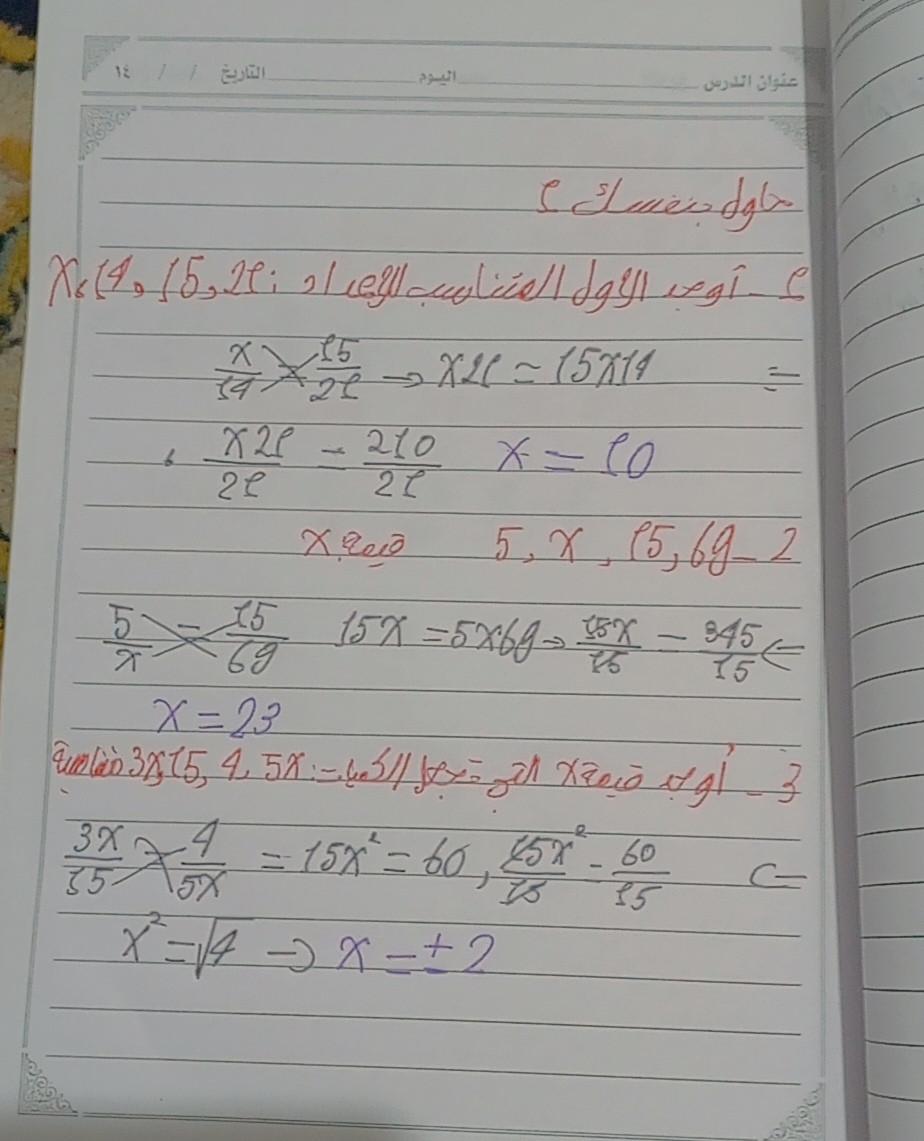 عنوان الدرس اليوم التاريخ / / ١٤
حاول حسناً 1
1 - أوجد الأول المتناسب للأعداد : x, 14, 15, 21
x/14 = 15/21 → x21 = 15x14 =
, x21/21 = 210/21 x = 10
2 - 5, x, 15, 69 قيمة x
5/x = 15/69 15x = 5x69 → 15x/15 = 345/15 ⇐
x = 23
3 - أوجد قيمة x التي تجعل الكميات : 3x, 15, 4, 5x متناسبة
3x/15 = 4/5x = 15x² = 60, 15x²/15 = 60/15 ⇐
x² = √4 → x = ± 2